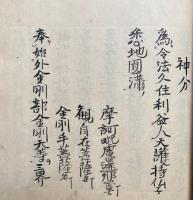 神分
為令法久住利益人天護持仏子
悉地圓満
摩訶毗盧遮那
観自在菩薩名
金剛手菩薩名
奉始外金剛部金剛天等三界